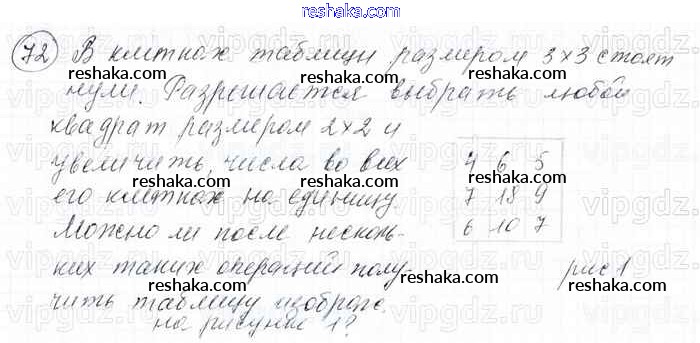 reshaka.com
72 В клетках таблицы размером 3×3 стоят
нули. Разрешается выбрать любой
квадрат размером 2×2 и
увеличить числа во всех
его клетках на единицу.
Можно ли после несколь-
ких таких операций полу-
чить таблицу изображ.
на рисунке 1?
4 6 5
7 18 9
6 10 7
рис 1
reshaka.com
reshaka.com
reshaka.com
reshaka.com
reshaka.com
reshaka.com
reshaka.com
reshaka.com
reshaka.com
reshaka.com